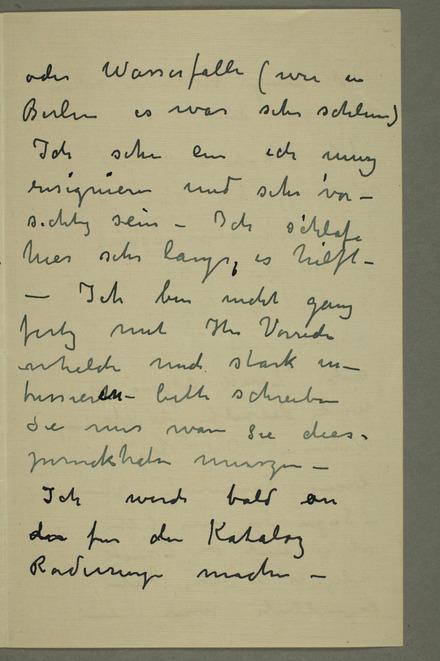 oder Wasserfälle (wie in
Berlin es war sehr schlimm)
Ich sehe ein ich muss
resignieren und sehr vor-
sichtig sein - Ich schlafe
hier sehr lange, es hilft -
- Ich bin nicht ganz
fertig mit Ihr Vorrede
und stark in-
bitte schreiben
Sie mir wan Sie dies.
-
Ich werde bald an
fur den Katalog
Radierunge machen -